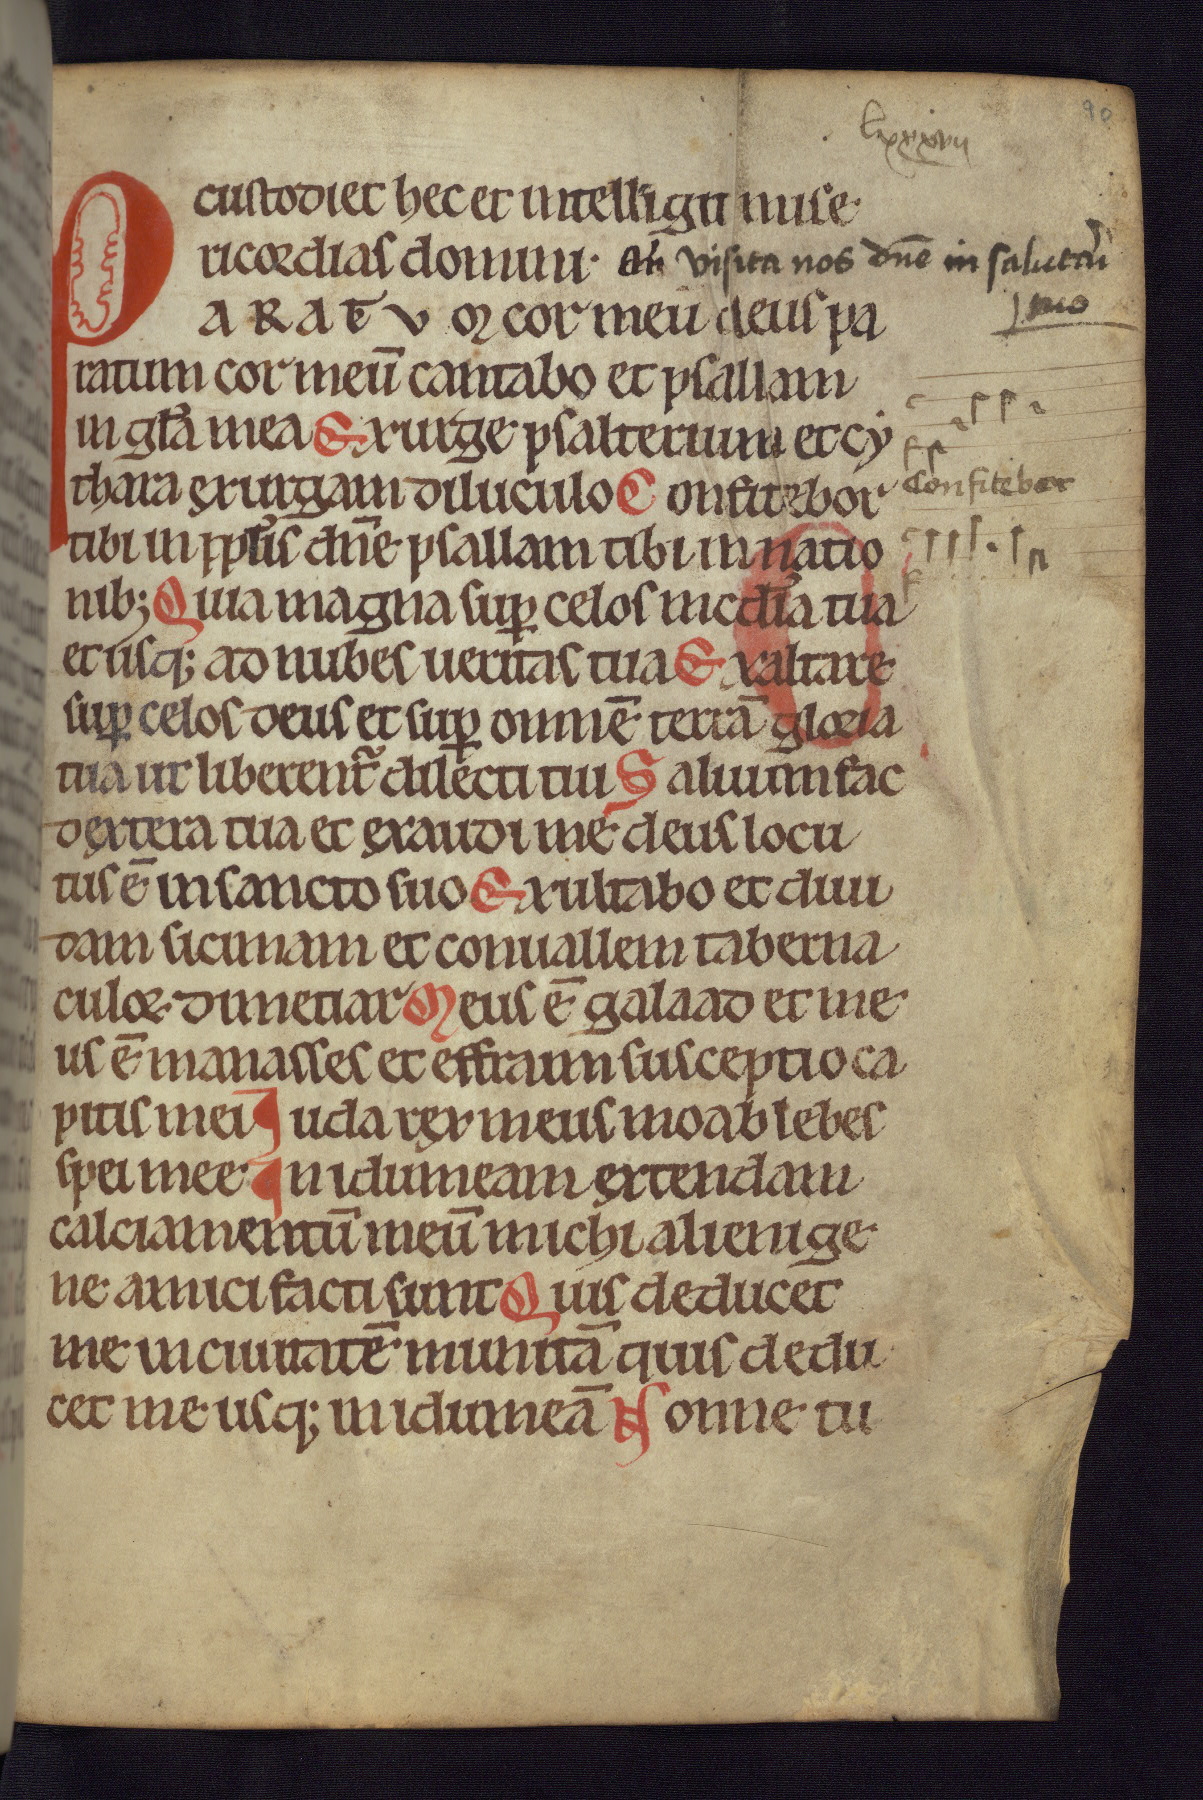 lxxxvii
90
custodiet hec et intelligit mise
ricordias domini· añ visita nos dñe in salutari
tuo
PARATUM cor meū deus pa
ratum cor meū cantabo et psallam
in glã mea Exurge psalterium et cy
thara exurgam diluculo Confitebor
Confitebor
tibi in pplis dñe psallam tibi in natio
nib; Quia magna sup celos mcdĩa tua
et usq; ad nubes ueritas tua Exaltare
sup celos deus et sup omnē terrā gloria
tua ut liberent dilecti tui Saluum fac
dextera tua et exaudi me deus locu
tus ē in sancto suo Exultabo et diui
dam sicimam et conuallem taberna
culoꝝ dimetiar Meus ē galaad et me
us ē manasses et effraim susceptio ca
pitis mei Iuda rex meus moab lebes
spei mee In idumeam extendam
calciamentū meū michi alienige
ne amici facti sunt Quis deducet
me in ciuitatē munitā quis dedu
cet me usq; in idumeā Nonne tu